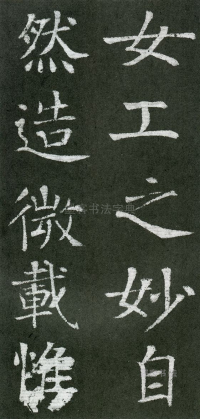 女工之妙自
然造微載惟